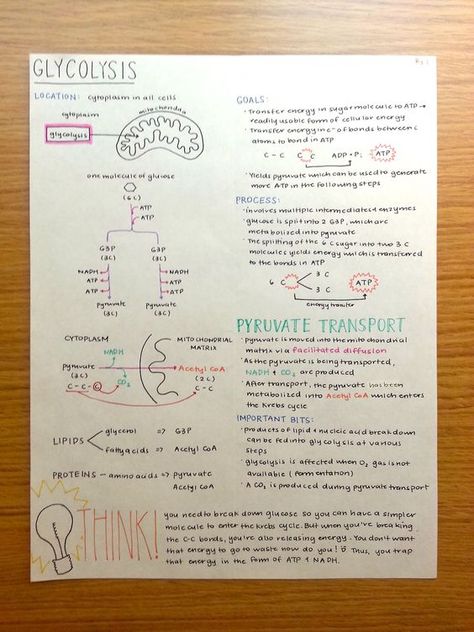 Pg. 1
GLYCOLYSIS
LOCATION: cytoplasm in all cells
mitochondria
cytoplasm
glycolysis
one molecule of glucose
(6C)
ATP
ATP
G3P G3P
(3C) (3C)
NADH NADH
ATP ATP
ATP ATP
pyruvate pyruvate
(3C) (3C)
CYTOPLASM MITOCHONDRIAL
MATRIX
NADH
pyruvate Acetyl CoA
(3C) (2C)
CO2
C-C-C C-C
LIPIDS glycerol => G3P
fatty acids => Acetyl CoA
PROTEINS - amino acids => pyruvate
Acetyl CoA
GOALS:
· Transfer energy in sugar molecule to ATP →
readily usable form of cellular energy
· Transfer energy in e- of bonds between C
atoms to bond in ATP
C-C C C ADP + Pi ATP
· Yields pyruvate which can be used to generate
more ATP in the following steps
PROCESS:
· involves multiple intermediates + enzymes
· glucose is split into 2 G3P, which are
metabolized into pyruvate
· The splitting of the 6 C sugar into two 3 C
molecules yields energy which is transferred
to the bonds in ATP
3 C
6 C ATP
3 C
energy transfer
PYRUVATE TRANSPORT
· Pyruvate is moved into the mitochondrial
matrix via facilitated diffusion
· As the pyruvate is being transported,
NADH + CO2 are produced
· After transport, the pyruvate has been
metabolized into Acetyl CoA which enters
the Krebs cycle
IMPORTANT BITS:
· products of lipid + nucleic acid breakdown
can be fed into glycolysis at various
steps
· glycolysis is affected when O2 gas is not
available (fermentation)
· A CO2 is produced during pyruvate transport
THINK!
you need to break down glucose so you can have a simpler
molecule to enter the krebs cycle. But when you're breaking
the C-C bonds, you're also releasing energy. You don't want
that energy to go to waste now do you! Thus, you trap
that energy in the form of ATP + NADH.